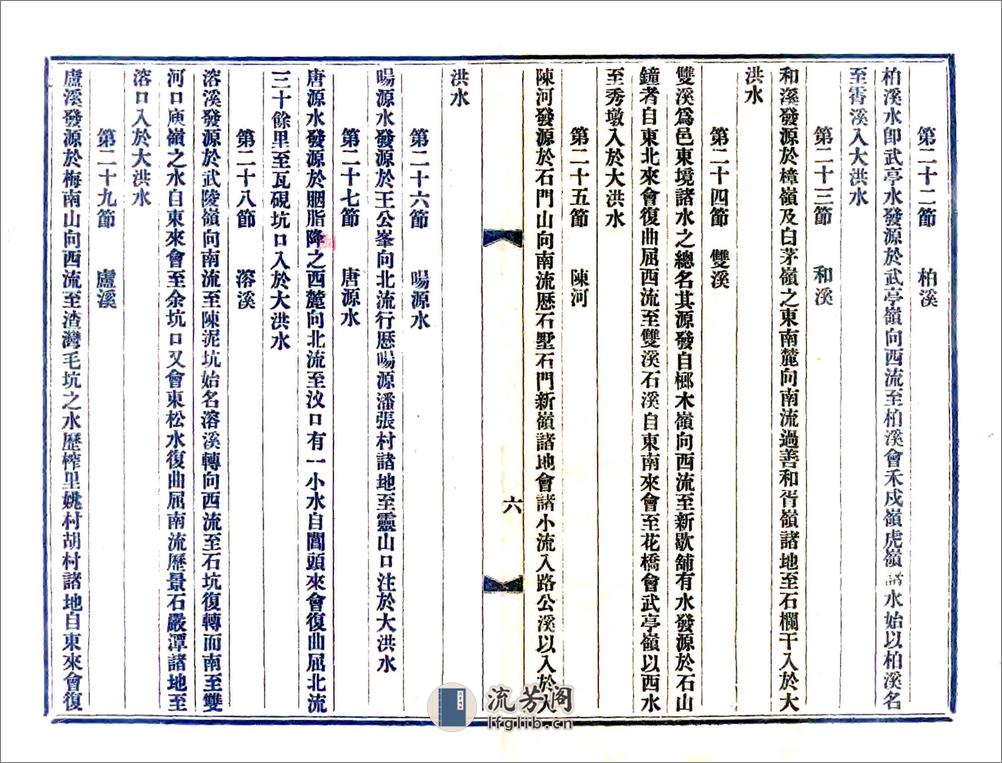 第二十二節　柏溪
柏溪水卽武亭水發源於武亭嶺向西流至柏溪會禾戍嶺虎嶺諸水始以柏溪名
至霄溪入大洪水
第二十三節　和溪
和溪發源於樟嶺及白茅嶺之東南麓向南流過善和胥嶺諸地至石欄干入於大
洪水
第二十四節　雙溪
雙溪爲邑東境諸水之總名其源發自榔木嶺向西流至新歇舖有水發源於石山
鐘者自東北來會復曲屈西流至雙溪石溪自東南來會至花橋會武亭嶺以西水
至秀墩入於大洪水
第二十五節　陳河
陳河發源於石門山向南流歷石墅石門新嶺諸地會諸小流入路公溪以入於大
六
洪水
第二十六節　暘源水
暘源水發源於王公峯向北流行歷暘源潘張村諸地至靈山口注於大洪水
第二十七節　唐源水
唐源水發源於胭脂降之西麓向北流至汶口有一小水自閶頭來會復曲屈北流
三十餘里至瓦硯坑口入於大洪水
第二十八節　溶溪
溶溪發源於武陵嶺向南流至陳泥坑始名溶溪轉向西流至石坑復轉而南至雙
河口庾嶺之水自東來會至余坑口又會東松水復曲屈南流歷景石嚴潭諸地至
溶口入於大洪水
第二十九節　盧溪
盧溪發源於梅南山向西流至渣灣毛坑之水歷榨里姚村胡村諸地自東來會復
流芳阁
lfglib.cn